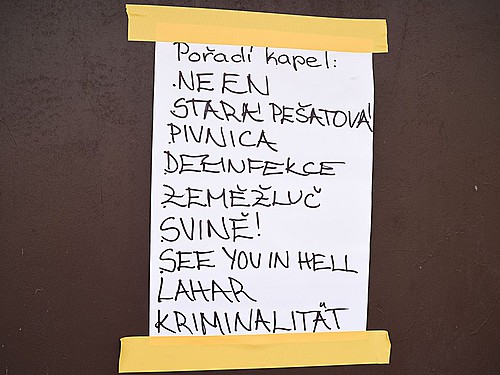 Pořadí kapel:
NEEN
STARÁ PEŠATOVÁ
PIVNICA
DEZINFEKCE
ZEMĚŽLUČ
SVINĚ!
SEE YOU IN HELL
LAHAR
KRIMINALITÄT